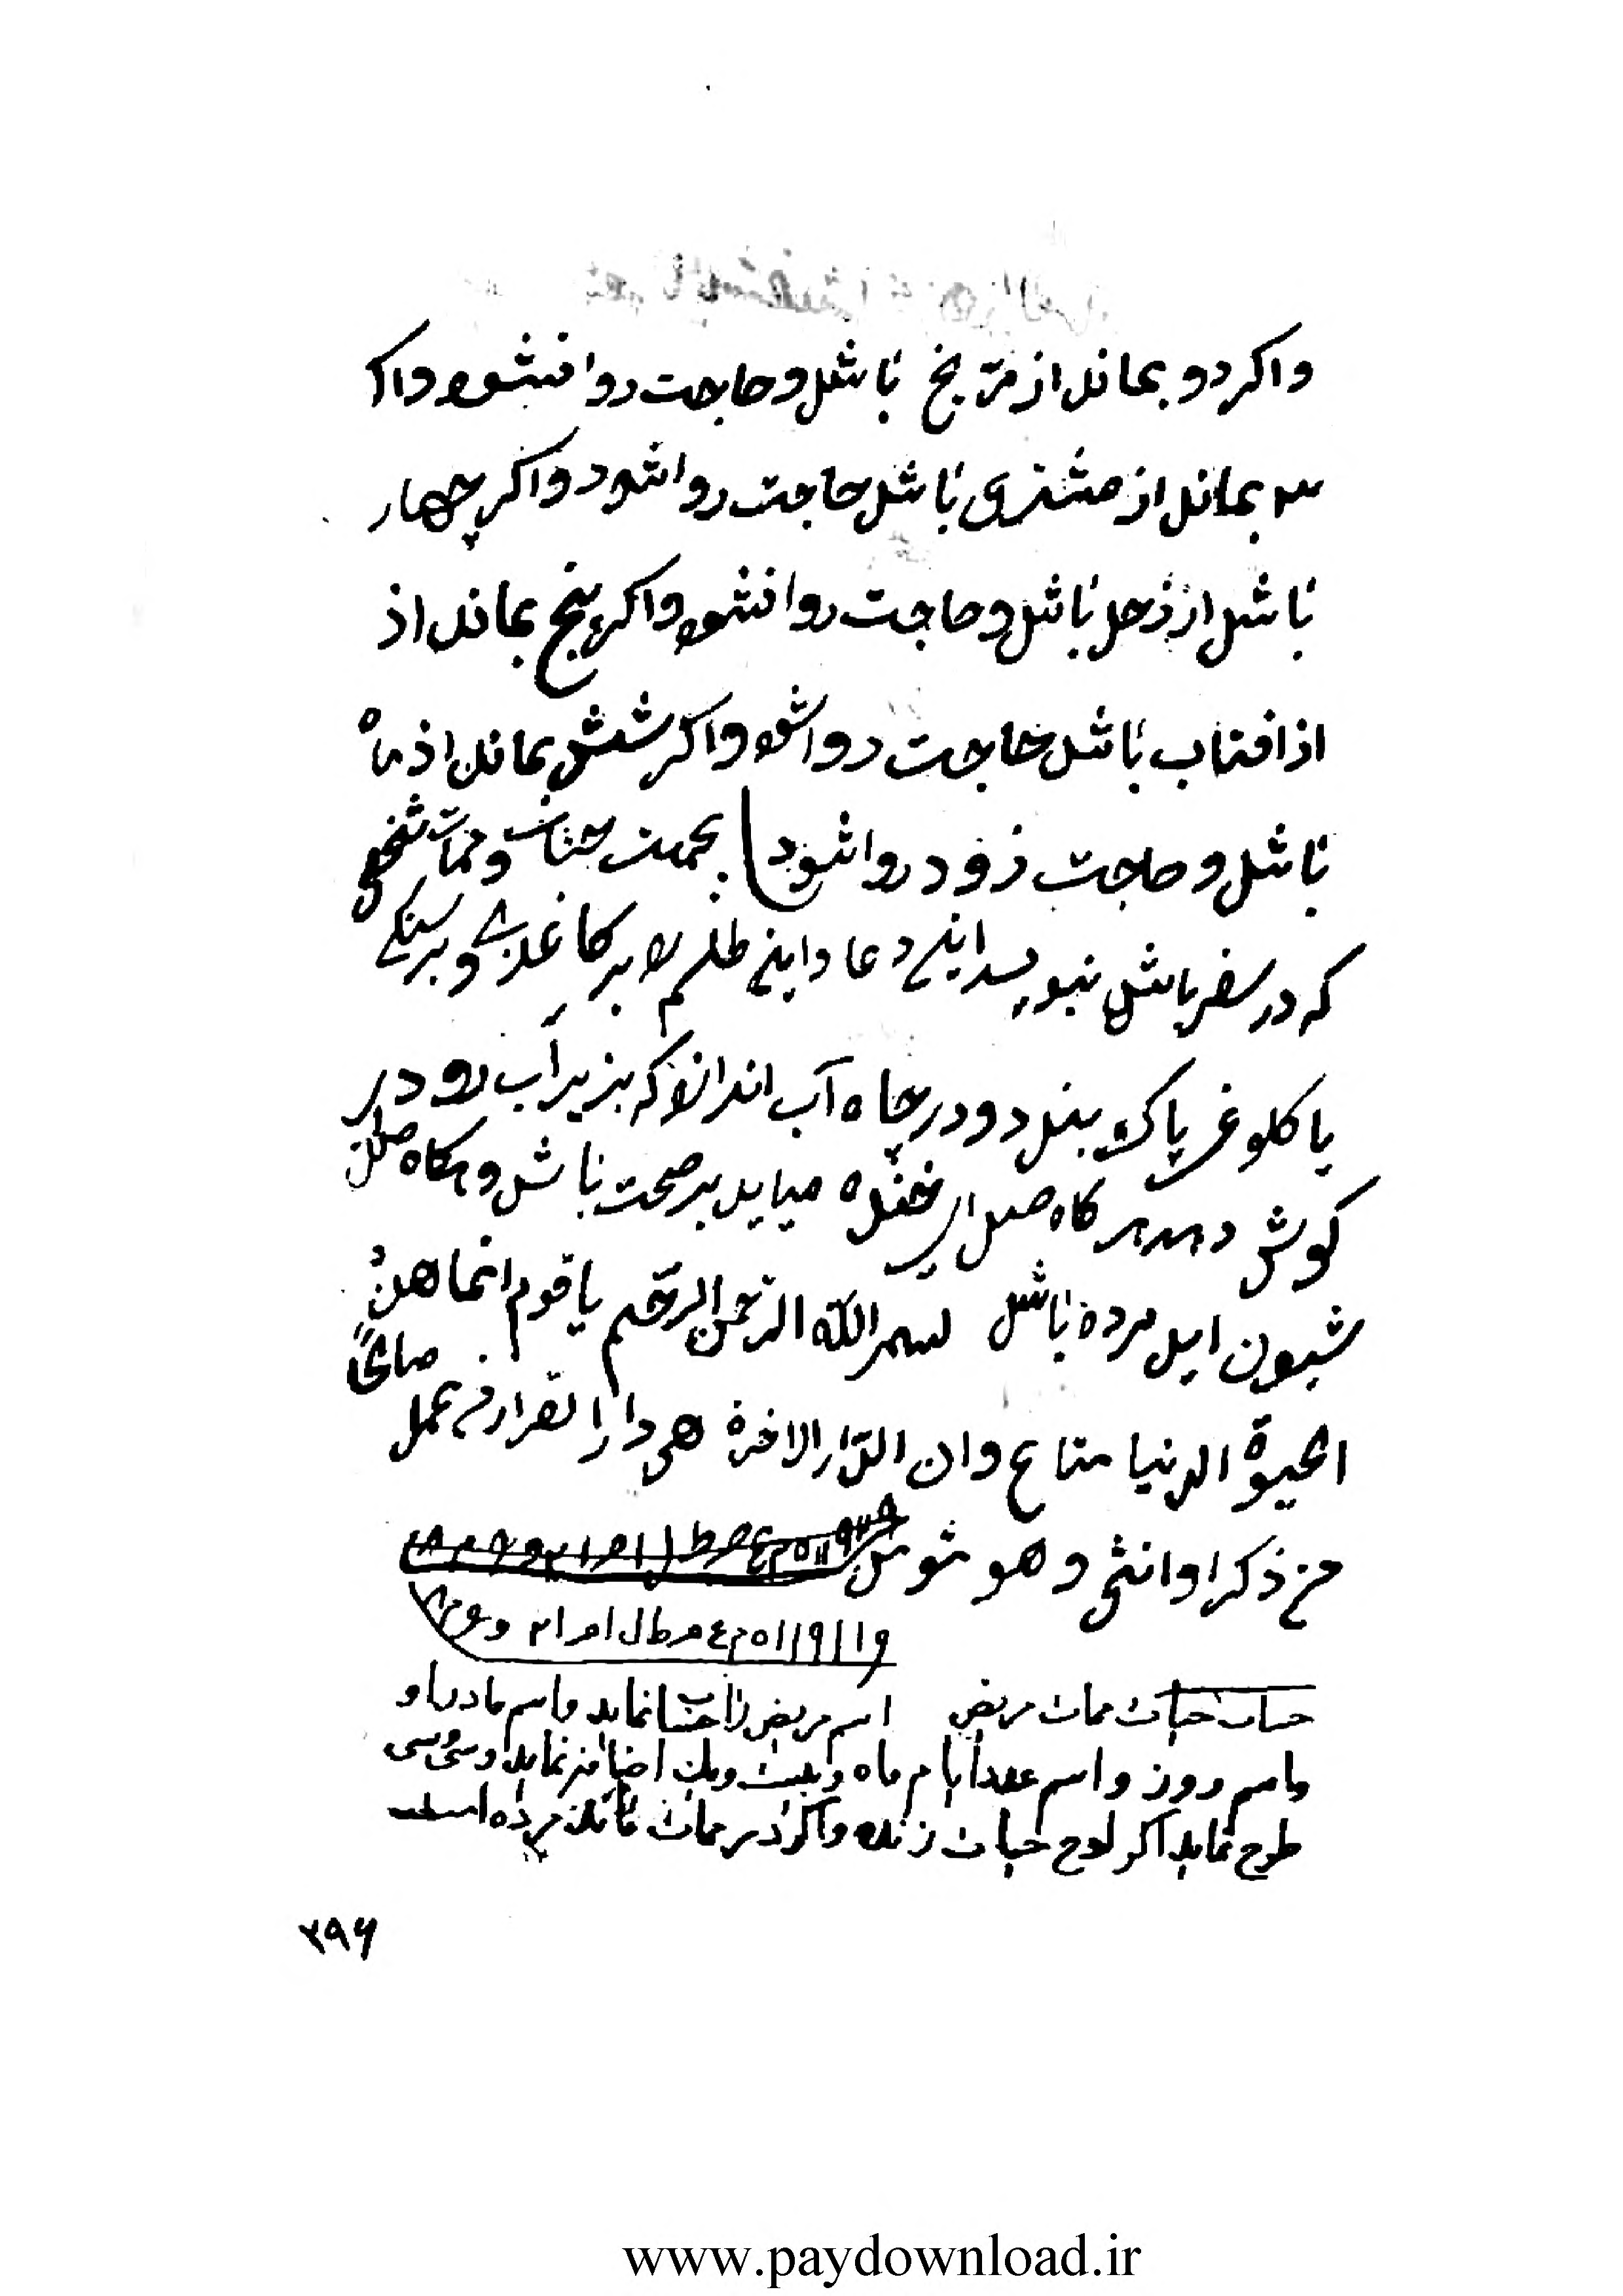 واکر دو بماند از مرّیخ باشد و حاجت روا نشود واکر
سه بماند از مشتری باشد حاجت روا شود واکر چهار
باشد از زحل باشد و حاجت روا نشود واکر پنج بماند از
از افتاب باشد حاجت روا شود واکر شش بماند از ماه
باشد و حاجت زود روا شود بجهت حیات و ممات شخصی
که در سفر باشد بنویسد این دعا و این طلسم را بر کاغذی و بر سنکی
یا کلوغی پاک به بندد و در چاه آب اندازد که بزیر آب رود و
کوش دهد هر کاه صدای خنده میاید بر صحت باشد و هرکاه صدای
شیون اید مرده باشد بسم الله الرّحمن الرّحیم یا قوم انما هذه
الحیوة الدنیا متاع وان الدّار الاخرة هی دار القرار من عمل صالحًا
من ذکر او انثی و هو مؤمن
حساب حیات ممات مریض اسم مریض را حساب نماید و اسم مادر او
و اسم روز و اسم عدد ایام ماه و بیست و یک اضافه نماید و سی و سی
طرح نماید اکر لوح حیات زنده واکر در ممات مرده است
۲۹۶
www.paydownload.ir